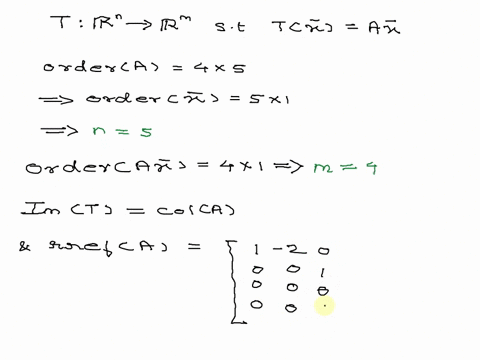 T : ℝⁿ → ℝᵐ s.t T(x̄) = Ax̄
order(A) = 4×5
⟹ order(x̄) = 5×1
⟹ n = 5
order(Ax̄) = 4×1 ⟹ m = 4
Im(T) = col(A)
& rref(A) = [ 1 -2 0
0 0 1
0 0 0
0 0 .